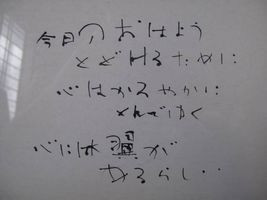 今日の おはよう
とどける ために
心はかろやかに
とんでゆく
心には 羽が
あるらし・・